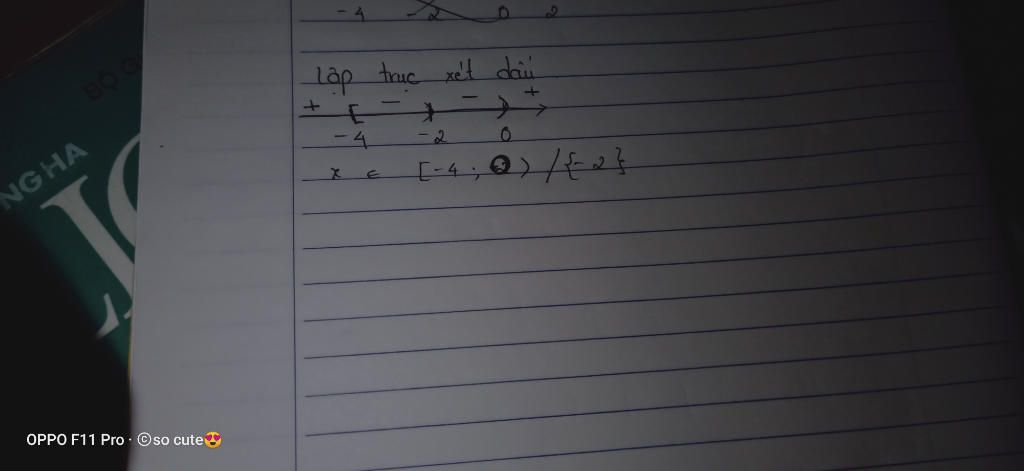 -4 -2 0 2
lập trục xét dấu
+ [ - ) - ) +
-4 -2 0
x ∈ [-4; 0) /{-2}
BỘ G
NG HA
OPPO F11 Pro · ©so cute😍